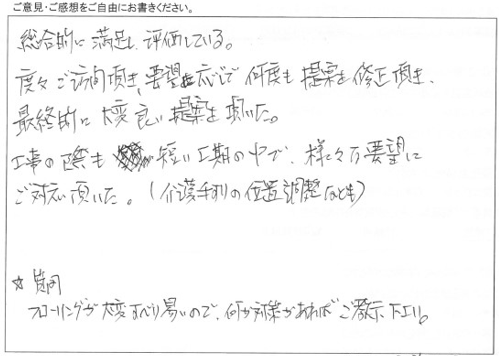 ご意見・ご感想をご自由にお書きください。
総合的に満足し、評価している。
度々ご訪問頂き、要望に応じて何度も提案を修正頂き、
最終的に大変良い提案を頂いた。
工事の際も短い工期の中で、様々な要望に
ご対応頂いた。(介護手すりの位置調整なども)
☆質問
フローリングが大変すべり易いので、何か対策があればご教示下さい。